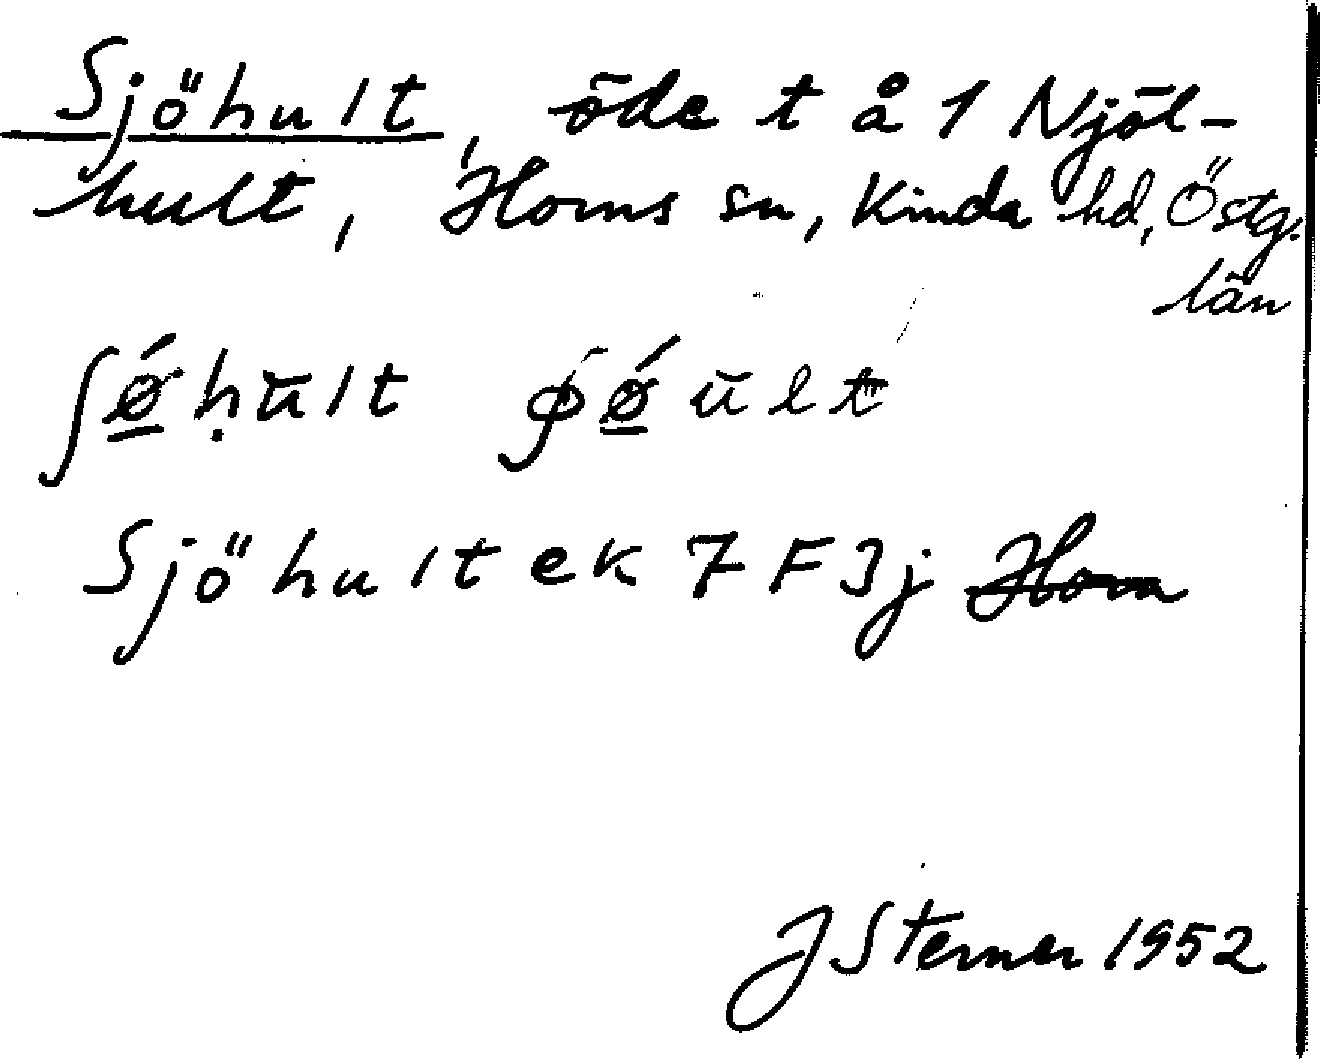 Sjöhult, öde t å 1 Njöl-
hult, Horns sn, Kinda hd, Östg.
län
Sjöhult ek 7 F 3j
J Sterner 1952